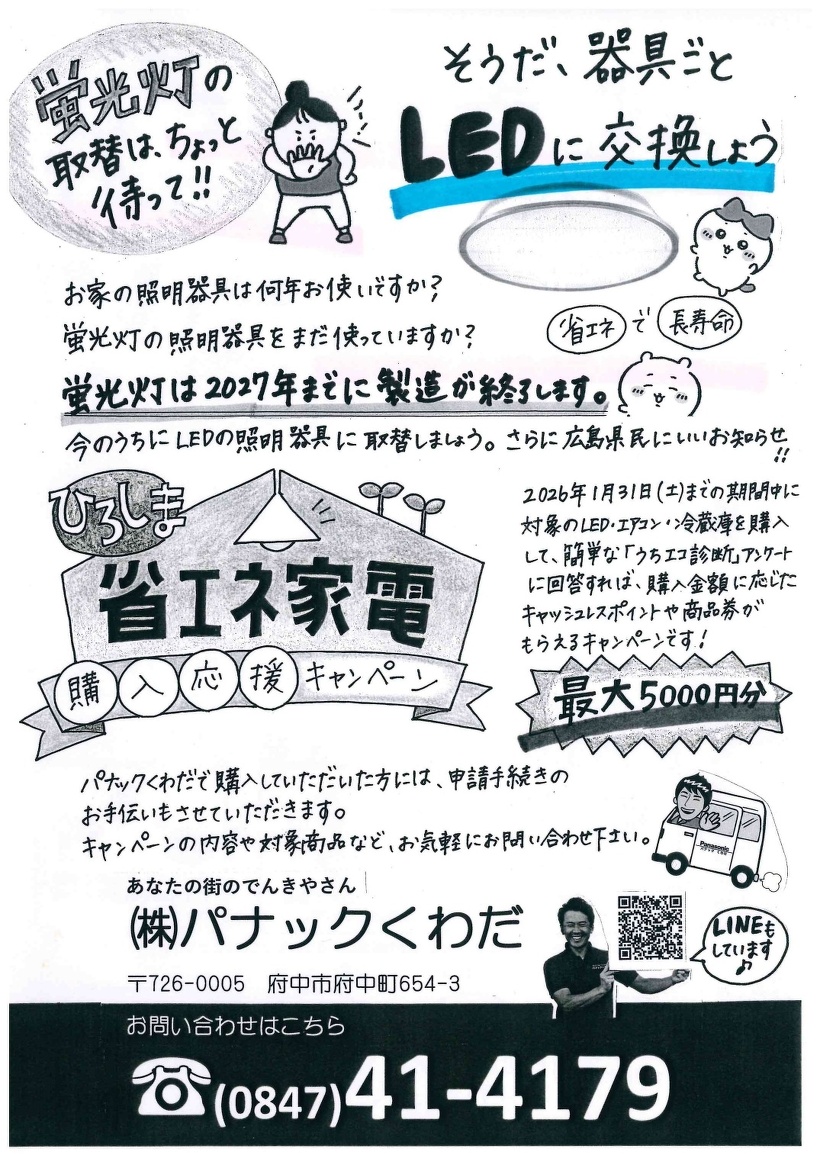 蛍光灯の
取替は、ちょっと
待って!!
そうだ、器具ごと
LEDに交換しよう
お家の照明器具は何年お使いですか?
蛍光灯の照明器具をまだ使っていますか?
省エネで長寿命
蛍光灯は2027年までに製造が終了します。
今のうちにLEDの照明器具に取替しましょう。さらに広島県民にいいお知らせ!!
ひろしま
省エネ家電
購入応援キャンペーン
2026年1月31日(土)までの期間中に
対象のLED・エアコン・冷蔵庫を購入
して、簡単な「うちエコ診断」アンケート
に回答すれば、購入金額に応じた
キャッシュレスポイントや商品券が
もらえるキャンペーンです!
最大5000円分
パナックくわだで購入していただいた方には、申請手続きの
お手伝いもさせていただきます。
キャンペーンの内容や対象商品など、お気軽にお問い合わせ下さい。
Panasonic
あなたの街のでんきやさん
㈱パナックくわだ
LINEも
しています♪
〒726-0005 府中市府中町654-3
お問い合わせはこちら
☎(0847)41-4179